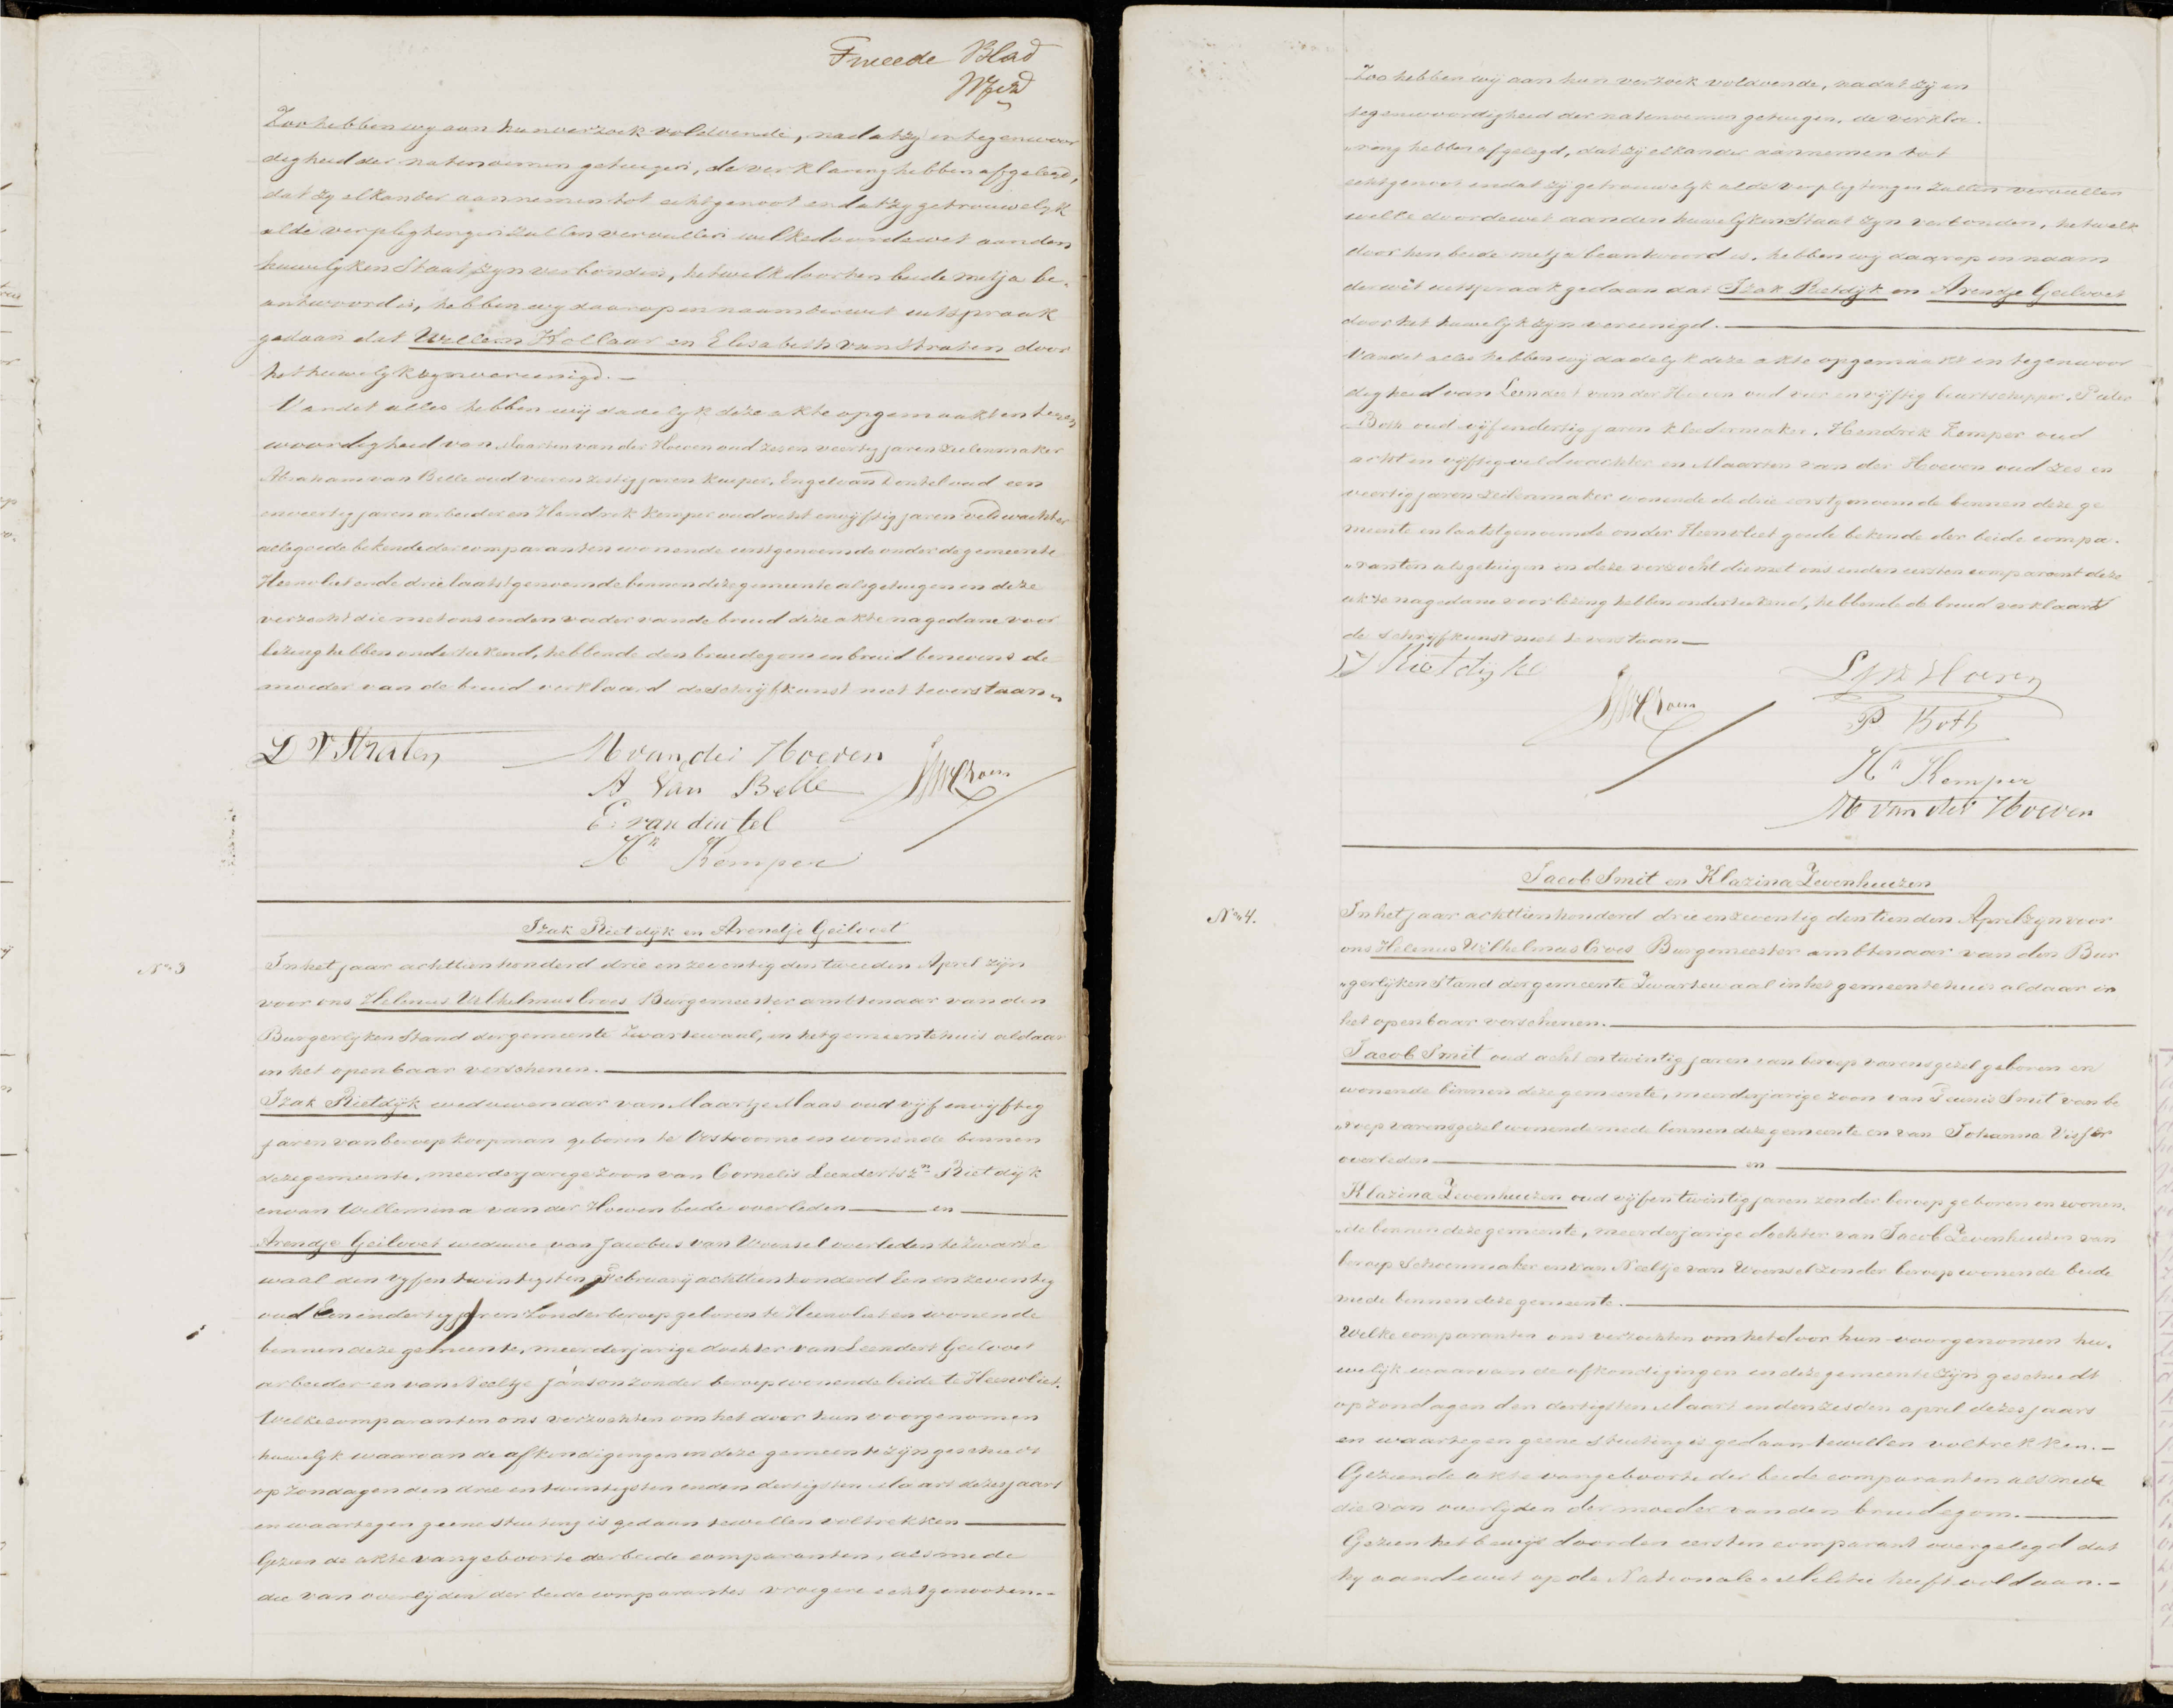 Tweede Blad
Zoo hebben wy aan hun verzoek voldoende, nadat zy in tegenwoor
digheid der natenoemen getuigen, de verklaring hebben afgelegd,
dat zy elkander aannemen tot echtgenoot en dat zy getrouwelyk
alde verpligtingen zullen vervullen welke door de wet aan den
huwelyken Staat zyn verbonden, hetwelk door hen beide met ja be-
antwoord is, hebben wy daarop in naam der wet uitspraak
gedaan dat Willem Kollaar en Elisabeth van Straten door
het huwelyk zyn vereenigd.—
Van dit alles hebben wij dadelyk deze akte opgemaakt in tegen
woordigheid van Maarten van der Hoeven oud zes en veertig jaren zeilenmaker
Abraham van Belle oud vier en zestig jaren kuiper, Engel van Dintel oud een
en veertig jaren arbeider en Hendrik Kemper oud acht en vijftig jaren veldwachter
alle goede bekende der comparanten wonende eerstgenoemde onder de gemeente
Heenvliet en de drie laatstgenoemde binnen deze gemeente als getuigen in deze
verzocht die met ons en den vader van de bruid deze akte na gedane voor
lezing hebben onderteekend, hebbende den bruidegom en bruid benevens de
moeder van de bruid verklaard de schrijfkunst niet te verstaan
D V Straten
M van der Hoeven
A Van Belle
E: van dintel
Hk Kemper
Izak Rietdijk en Arendje Geilvoet
No 3
In het jaar achttienhonderd drie en zeventig den tweeden April zijn
voor ons Helenus Wilhelmus Croes Burgemeester ambtenaar van den
Burgerlyken Stand der gemeente Zwartewaal, in het gemeentehuis aldaar
in het openbaar verschenen.
Izak Rietdijk weduwenaar van Maartje Maas oud vijf en vijftig
jaren van beroep koopman geboren te Oostvoorne en wonende binnen
deze gemeente, meerderjarige zoon van Cornelis Leendertszn Rietdijk
en van Willemina van der Hoeven beide overleden — en —
Arendje Geilvoet weduwe van Jacobus van Woensel overleden te Zwarte
waal den vyfen twintigsten February achttienhonderd Een en zeventig
oud Een en dertig jaren zonder beroep geboren te Heenvliet en wonende
binnen deze gemeente, meerderjarige dochter van Leendert Geilvoet
arbeider en van Neeltje Janson zonder beroep wonende beide te Heenvliet.
Welke comparanten ons verzochten om het door hun voorgenomen
huwelyk waarvan de afkondigingen in deze gemeente zijn geschiedt
op zondagen den drie en twintigsten en den dertigsten Maart dezes jaars
en waartegen geene stuiting is gedaan te willen voltrekken —
Gezien de akte van geboorte der beide comparanten, alsmede
die van overlijden der beide comparantes vroegere echtgenooten.—
Zoo hebben wij aan hun verzoek voldoende, nadat zij in
tegenwoordigheid der natenoemen getuigen, de verkla-
„ring hebben afgelegd, dat zij elkander aannemen tot
echtgenoot en dat zij getrouwelyk alde verpligtingen zullen vervullen
welke door de wet aan den huwelyken Staat zyn verbonden, hetwelk
door hen beide met ja beantwoord is, hebben wij daarop in naam
der wet uitspraak gedaan dat Izak Rietdijk en Arendje Geilvoet
door het huwelyk zyn vereenigd.—
Van dit alles hebben wij dadelyk deze akte opgemaakt in tegenwoor
digheid van Leendert van der Hoeven oud vier en vijftig beurtschipper, Pieter
Both oud vijf en dertig jaren kleedermaker, Hendrik Kemper oud
acht en vijftig veldwachter en Maarten van der Hoeven oud zes en
veertig jaren zeilenmaker wonende de drie eerstgenoemde binnen deze ge
meente en laatstgenoemde onder Heenvliet goede bekende der beide compa-
„ranten als getuigen in deze verzocht die met ons en den eersten comparant deze
akte na gedane voorlezing hebben onderteekend, hebbende de bruid verklaard
de schrijfkunst niet te verstaan—
I Rietdijk
P Both
Hk Kemper
M van der Hoeven
Jacob Smit en Klazina Zevenhuizen
No 4.
In het jaar achttienhonderd drie en zeventig den tienden April zyn voor
ons Helenus Wilhelmus Croes Burgemeester ambtenaar van den Bur
„gerlyken Stand der gemeente Zwartewaal in het gemeentehuis aldaar in
het openbaar verschenen.
Jacob Smit oud acht en twintig jaren van beroep varensgezel geboren en
wonende binnen deze gemeente, meerderjarige zoon van Teunis Smit van be
„roep varensgezel wonende mede binnen deze gemeente en van Johanna Visser
overleden — en —
Klazina Zevenhuizen oud vijf en twintig jaren zonder beroep geboren en wonen.
„de binnen deze gemeente, meerderjarige dochter van Jacob Zevenhuizen van
beroep Schoenmaker en van Neeltje van Woensel zonder beroep wonende beide
mede binnen deze gemeente.
Welke comparanten ons verzochten om het door hun voorgenomen hu-
welijk waarvan de afkondigingen in deze gemeente zijn geschiedt
op zondagen den dertigsten Maart en den zesden april dezes jaars
en waartegen geene stuiting is gedaan te willen voltrekken.—
Geziende akte van geboorte der beide comparanten alsmede
die van overlijden der moeder van den bruidegom.
Gezien het bewijs door den eersten comparant overgelegd dat
hy aan de wet op de Nationale Militie heeft voldaan.—